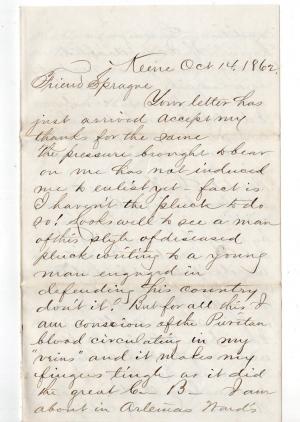 Keene Oct 14, 1862
Friend Sprague
Your letter has
just arrived accept my
thanks for the same
The pressure brought to bear
on me has not induced
me to enlist yet - fact is
I haven't the pluck to do
so! Looks well to see a man
of this style of diseased
pluck writing to a young
man engaged in
defending this country
don't it? But for all this I
am conscious of the Puritan
blood circulating in my
"veins" and it makes my
fingers tingle as it did
the great C B - I am
about in Artemas Wards